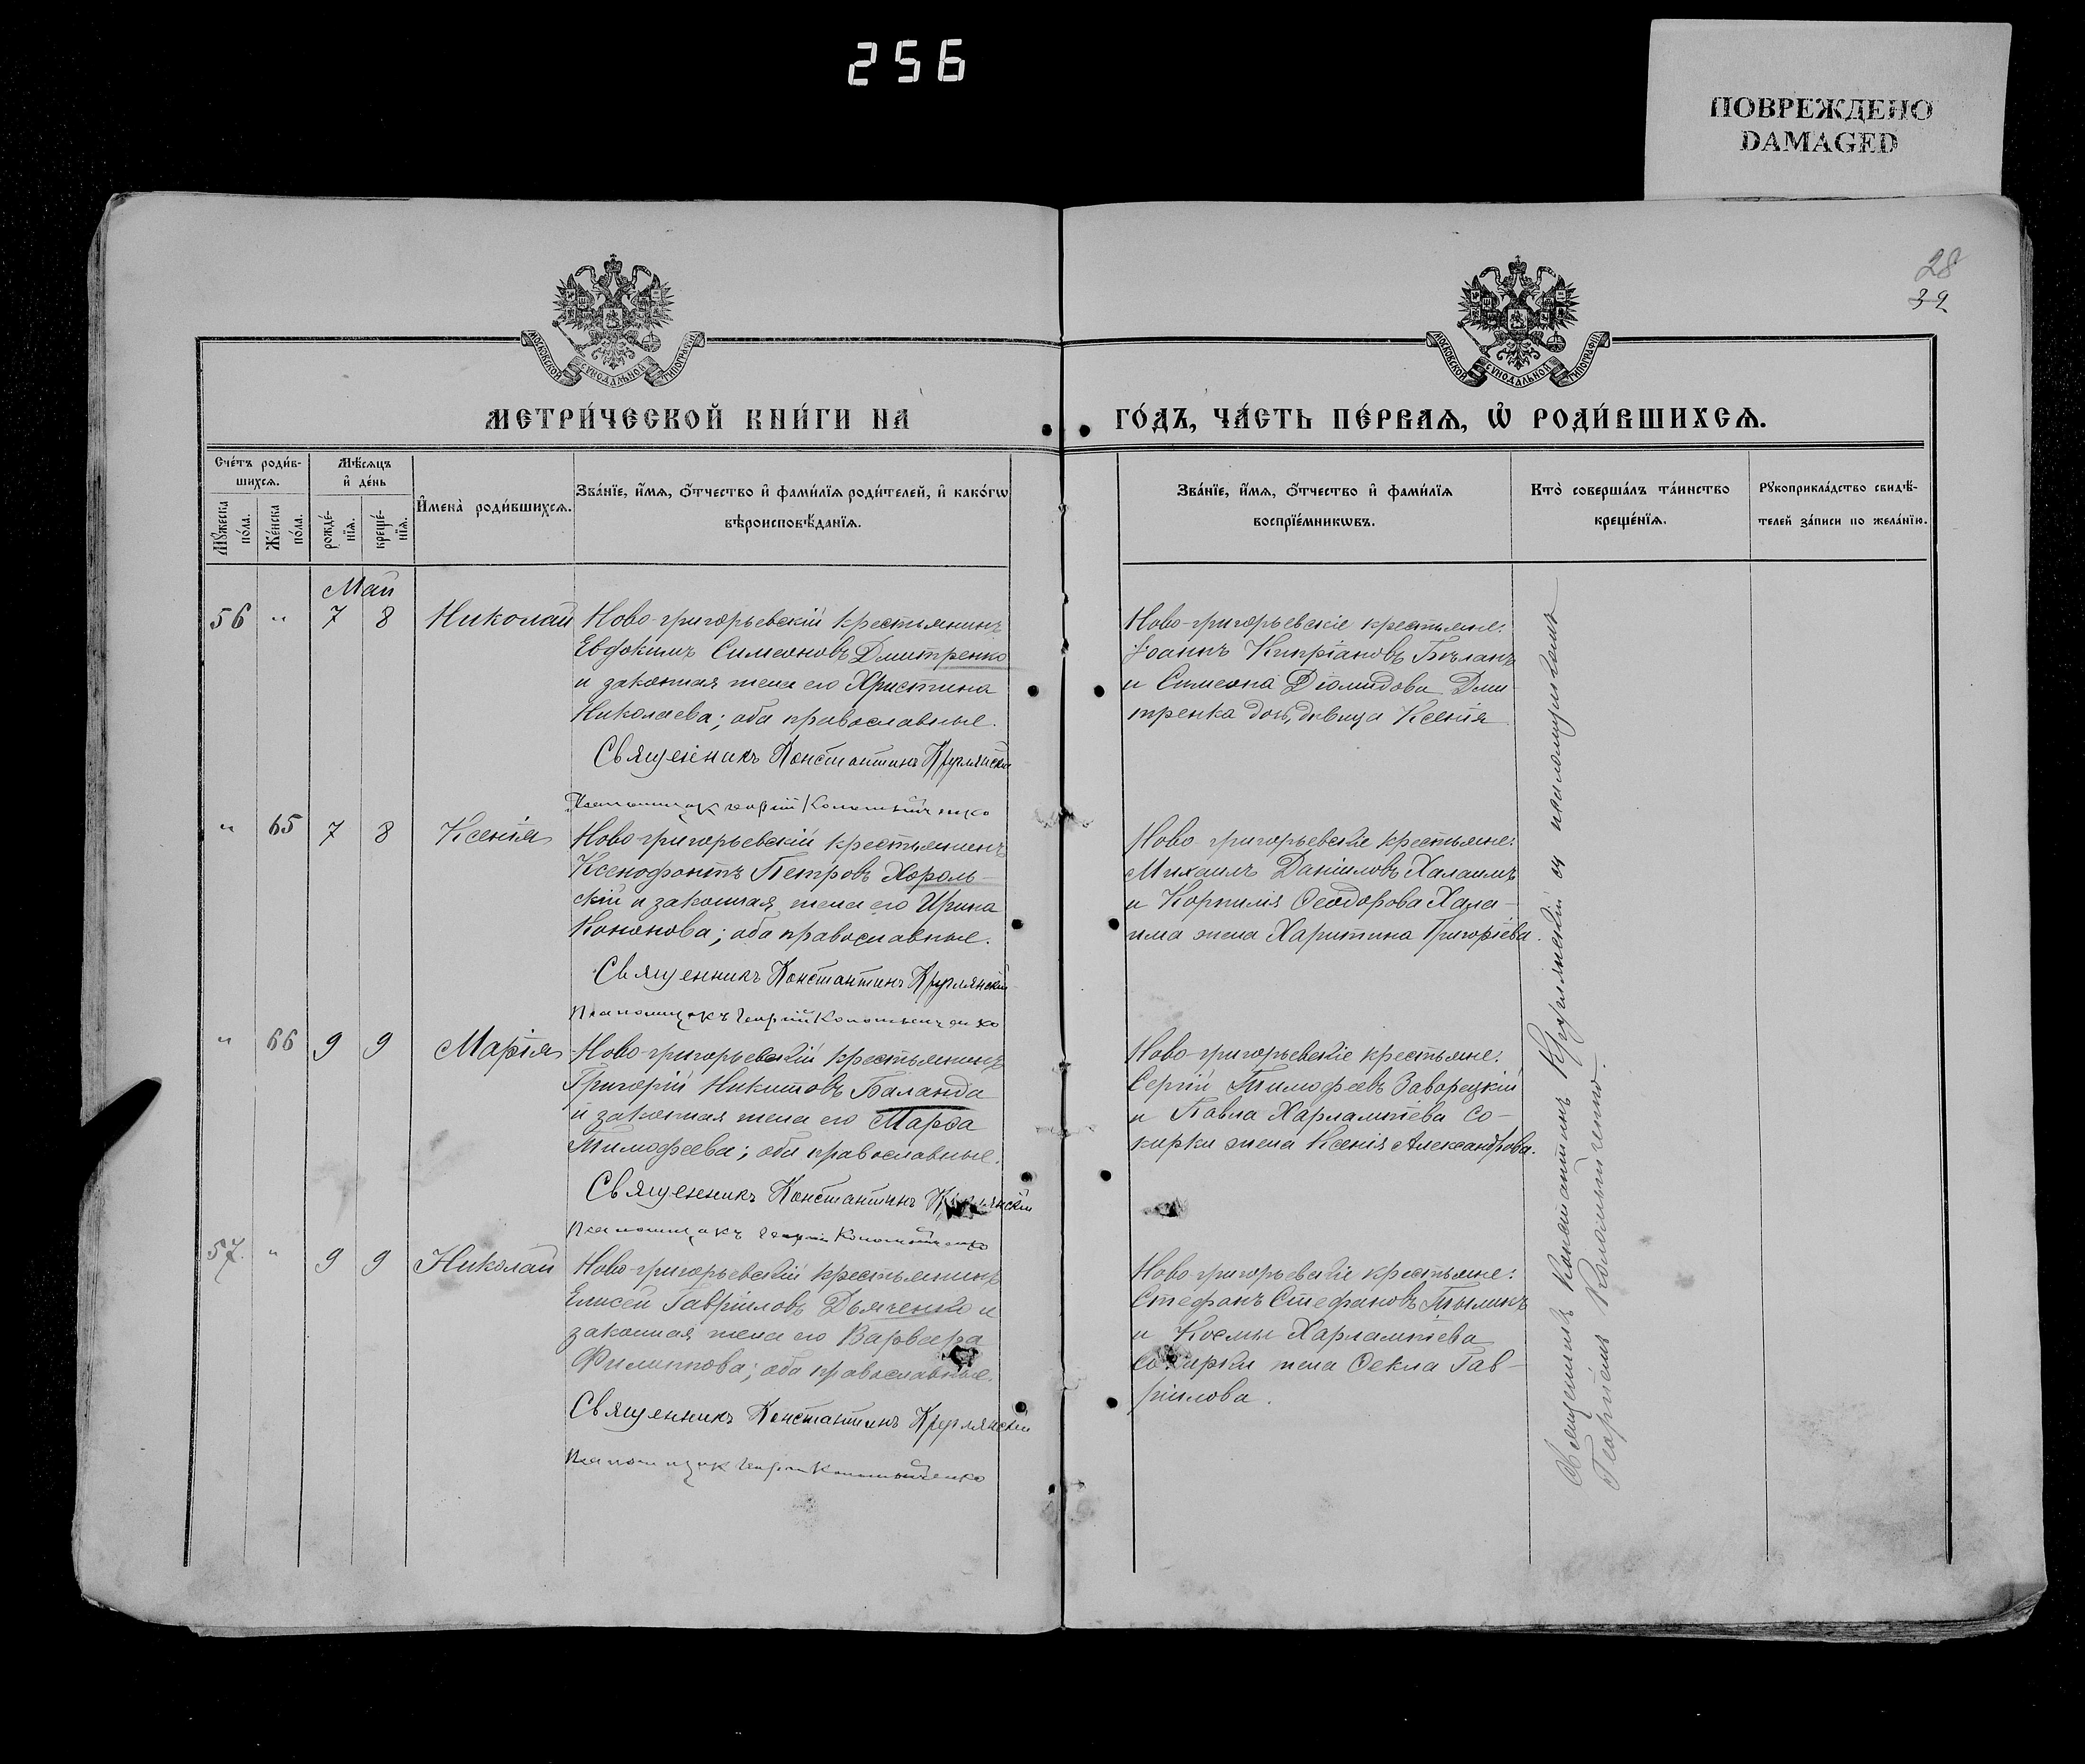 256
ПОВРЕЖДЕНО
DAMAGED
28
39
МОСКОВСКОЙ СѴНОДАЛЬНОЙ ТИПОГРАФІИ
МОСКОВСКОЙ СѴНОДАЛЬНОЙ ТИПОГРАФІИ
МЕТРИ́ЧЕСКОЙ КНИ́ГИ НА
ГО́ДЪ, ЧА́СТЬ ПЕ́РВАѦ, Ѡ҆ РОДИ́ВШИХСѦ.
Сче́тъ роди́в-
шихсѧ.
Мꙋ́жеска по́ла.
Же́нска по́ла.
Мѣ́сѧцъ
и҆ де́нь
рожде́-
нїѧ.
креще́-
нїѧ.
И҆мена̀ роди́вшихсѧ.
Зва́нїе, и҆́мѧ, ѻ҆́тчество и҆ фами́лїѧ роди́телей, и҆ како́гѡ
вѣроисповѣ́данїѧ.
Зва́нїе, и҆́мѧ, ѻ҆́тчество и҆ фами́лїѧ
воспрїе́мникѡвъ.
Кто̀ соверша́лъ та́инство
креще́нїѧ.
Рꙋкоприкла́дство свидѣ́-
телей за́писи по жела́нїю.
Май
56 " 7 8 Николай
Ново-григорьевскій крестьянинъ
Евфокимъ Симеоновъ Дмитренко
и законная жена его Христина
Николаева; оба православные.
Священникъ Константинъ Круглянскій
Псаломщикъ Георгій Коломыйченко
Ново-григорьевскіе крестьяне:
Іоаннъ Кипріановъ Бѣланъ
и Симеона Діомидова Дми-
тренка дочь, дѣвица Ксенія
" 65 7 8 Ксенія
Ново-григорьевскій крестьянинъ
Ксенофонтъ Петровъ Хороль-
скій и законная жена его Ирина
Кононова; оба православные.
Священникъ Константинъ Круглянскій
Псаломщикъ Георгій Коломыйченко
Ново григорьевскіе крестьяне:
Михаилъ Даніиловъ Халаимъ
и Корнилія Ѳеодорова Хала-
има жена Харитина Григоріева.
" 66 9 9 Марія
Ново-григорьевскій крестьянинъ
Григорій Никитовъ Баланда
и законная жена его Марѳа
Тимофеева; оба православные.
Священникъ Константинъ Круглянскій
Псаломщикъ Георгій Коломыйченко
Ново-григорьевскіе крестьяне:
Сергій Тимофеевъ Заворецкій
и Павла Харлампіева Со-
кирки жена Ксенія Александрова.
57 " 9 9 Николай
Ново-григорьевскій крестьянинъ
Елисей Гавріиловъ Дьяченко и
законная жена его Варвара
Филиппова; оба православные.
Священникъ Константинъ Круглянскій
Псаломщикъ Георгій Коломыйченко
Ново григорьевскіе крестьяне:
Стефанъ Стефановъ
и Космы Харлампіева
Сокирки жена Ѳекла Гав-
ріилова.
Священникъ Константинъ Круглянскій съ псаломщикомъ
Георгіемъ Коломыйченко.